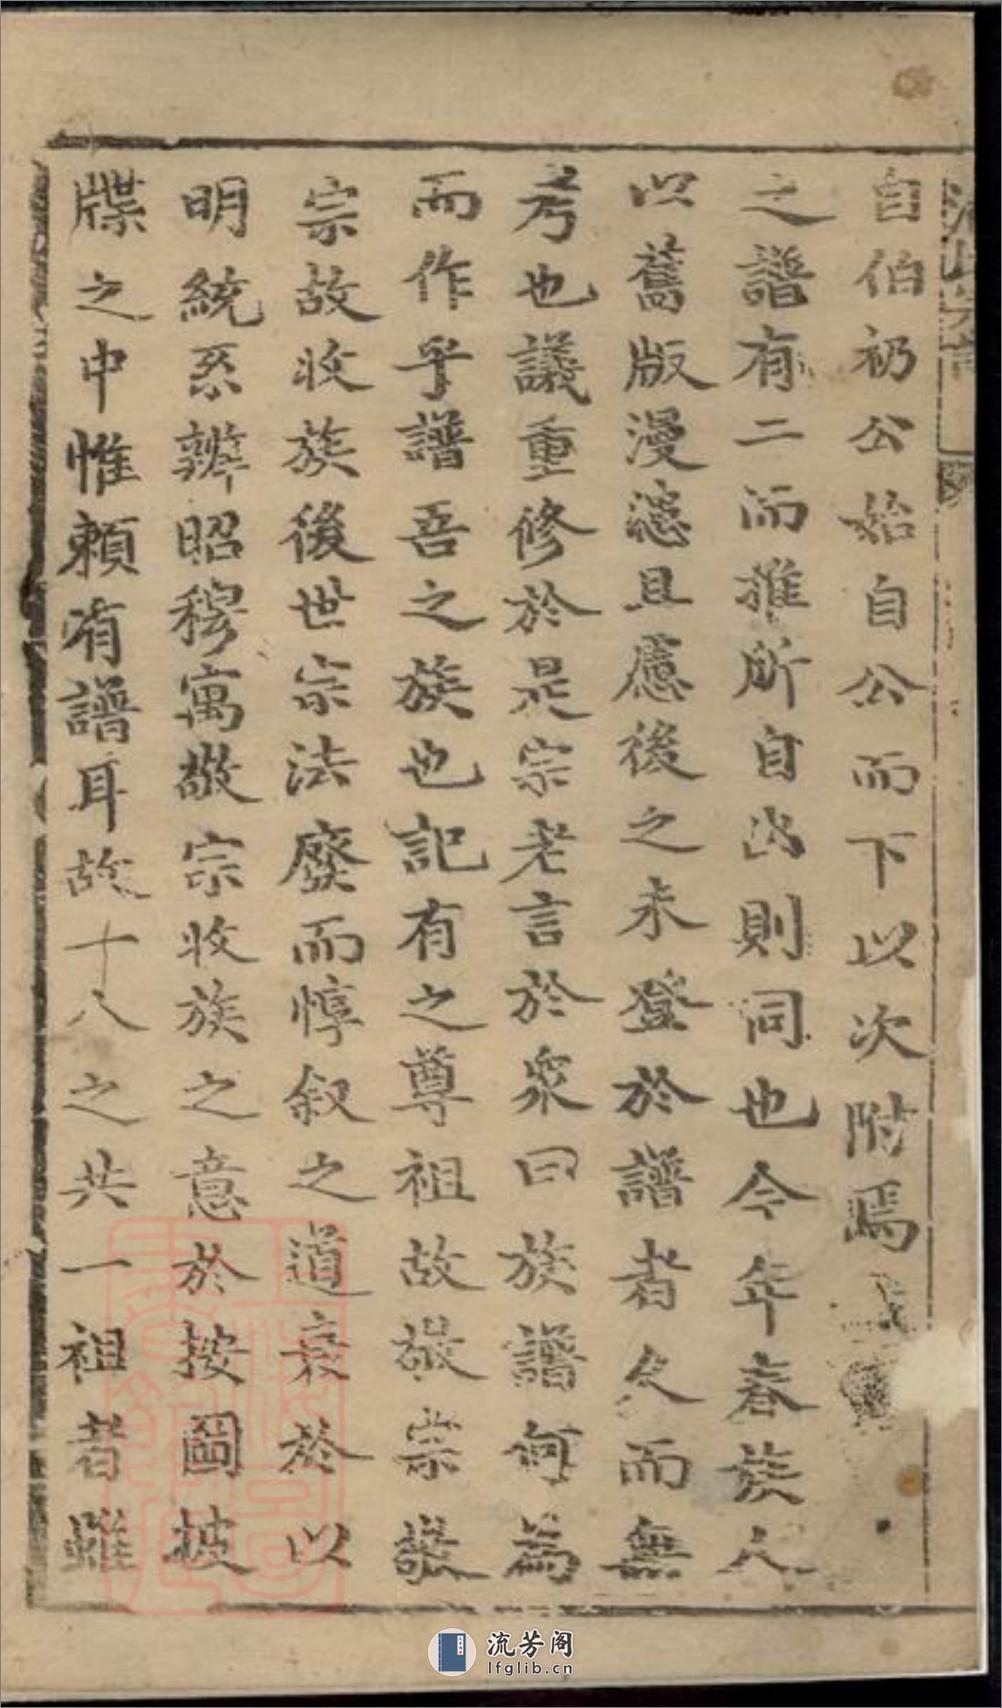 自伯礽公始自公而下以次附焉
之譜有二而推所自出則同也今年春族人
以舊版漫漶且慮後之未登於譜者久而無
考也議重修於是宗老言於衆曰族譜何為
而作乎譜吾之族也記有之尊祖故敬宗敬
宗故收族後世宗法廢而惇叙之道衰於以
明統系辨昭穆寓敬宗收族之意於按圖披
牒之中惟賴有譜耳故十八之共一祖者雖
流芳阁
lfglib.cn